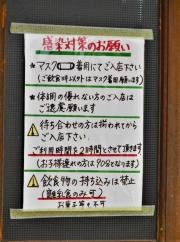 感染対策のお願い
★マスク着用にてご入店下さい
(ご飲食時以外はマスク着用願います)
★体調の優れない方のご入店は
ご遠慮願います
待ち合わせの方は揃われてから
ご入店下さい。
ご利用時間を2時間とさせて頂きます
(お子様連れの方は90分となります)
飲食物の持ち込みは禁止
(離乳食のみ可)
お菓子等不可